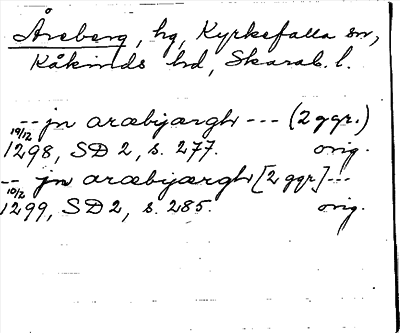 Åreberg, hg, Kyrkefalla sn,
Kåkinds hd, Skarab. l.
-- jn aræbijærgh --- (2 ggr.)
19/12 1298, SD 2, s. 277. orig.
-- jn aræbijærgh [2 ggr] ---
10/2 1299, SD 2, s. 285. orig.